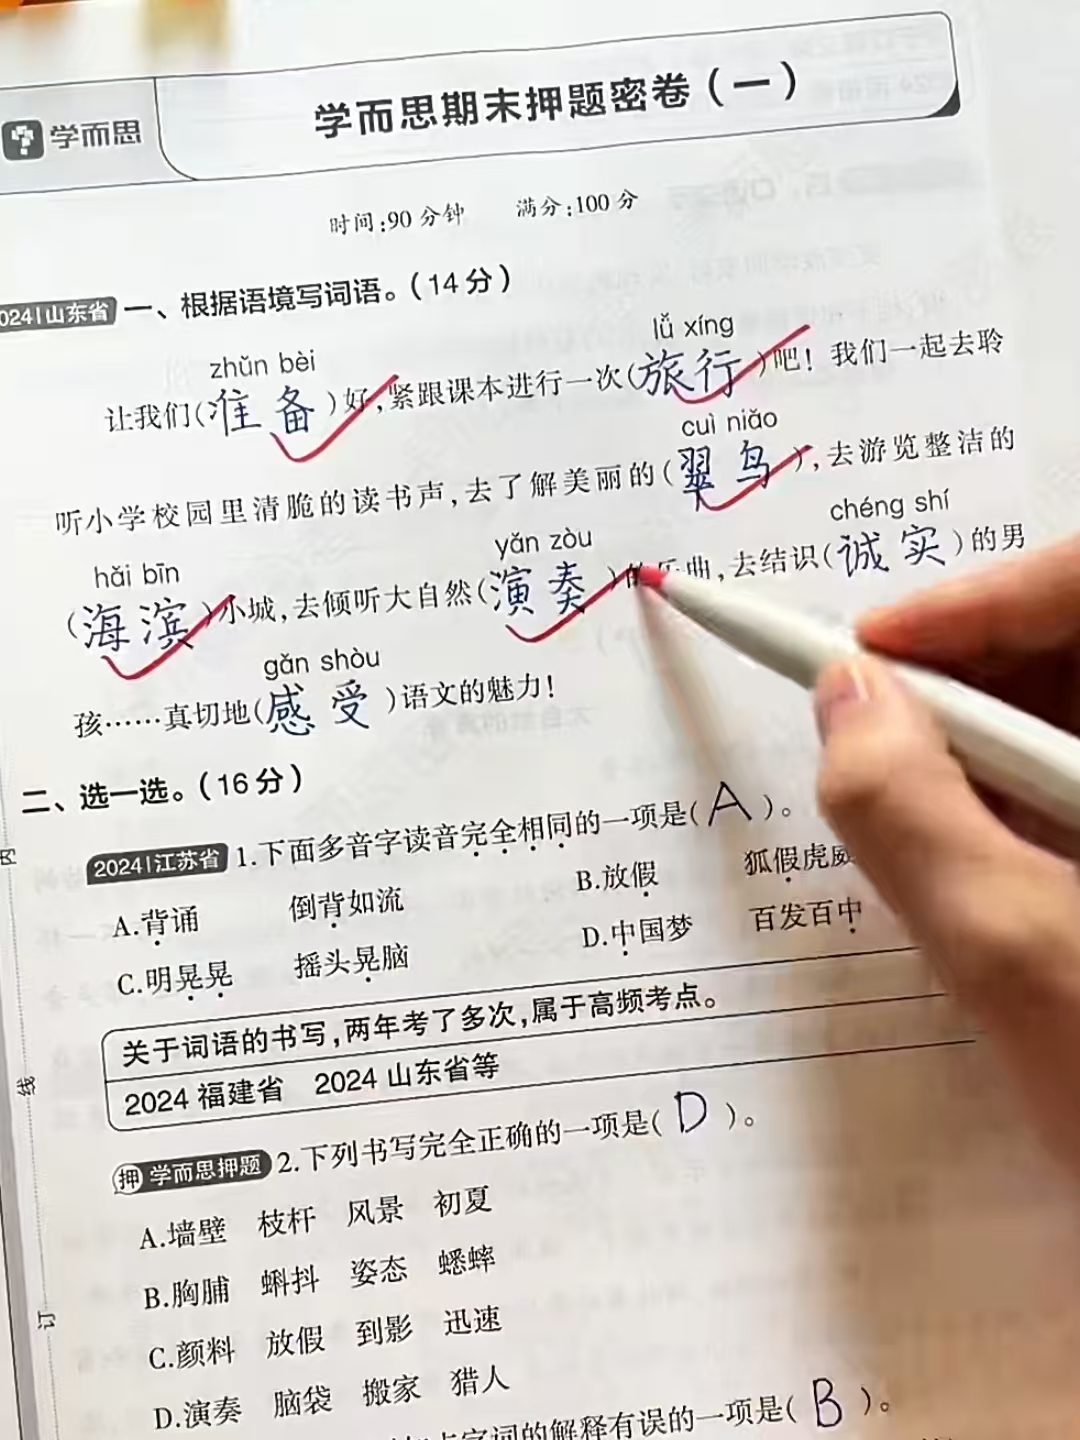 学而思
学而思期末押题密卷(一)
时间:90分钟 满分:100分
2024|山东省 一、根据语境写词语。(14分)
zhǔn bèi lǚ xíng
让我们(准备)好,紧跟课本进行一次(旅行)吧!我们一起去聆
cuì niǎo
听小学校园里清脆的读书声,去了解美丽的(翠鸟),去游览整洁的
hǎi bīn yǎn zòu chéng shí
(海滨)小城,去倾听大自然(演奏)的乐曲,去结识(诚实)的男
gǎn shòu
孩……真切地(感受)语文的魅力!
二、选一选。(16分)
2024|江苏省 1.下面多音字读音完全相同的一项是(A)。
A.背诵 倒背如流 B.放假 狐假虎威
C.明晃晃 摇头晃脑 D.中国梦 百发百中
关于词语的书写,两年考了多次,属于高频考点。
2024福建省 2024山东省等
押 学而思押题 2.下列书写完全正确的一项是(D)。
A.墙壁 枝杆 风景 初夏
B.胸脯 蝌抖 姿态 蟋蟀
C.颜料 放假 到影 迅速
D.演奏 脑袋 搬家 猎人
点字词的解释有误的一项是(B)。
线
订